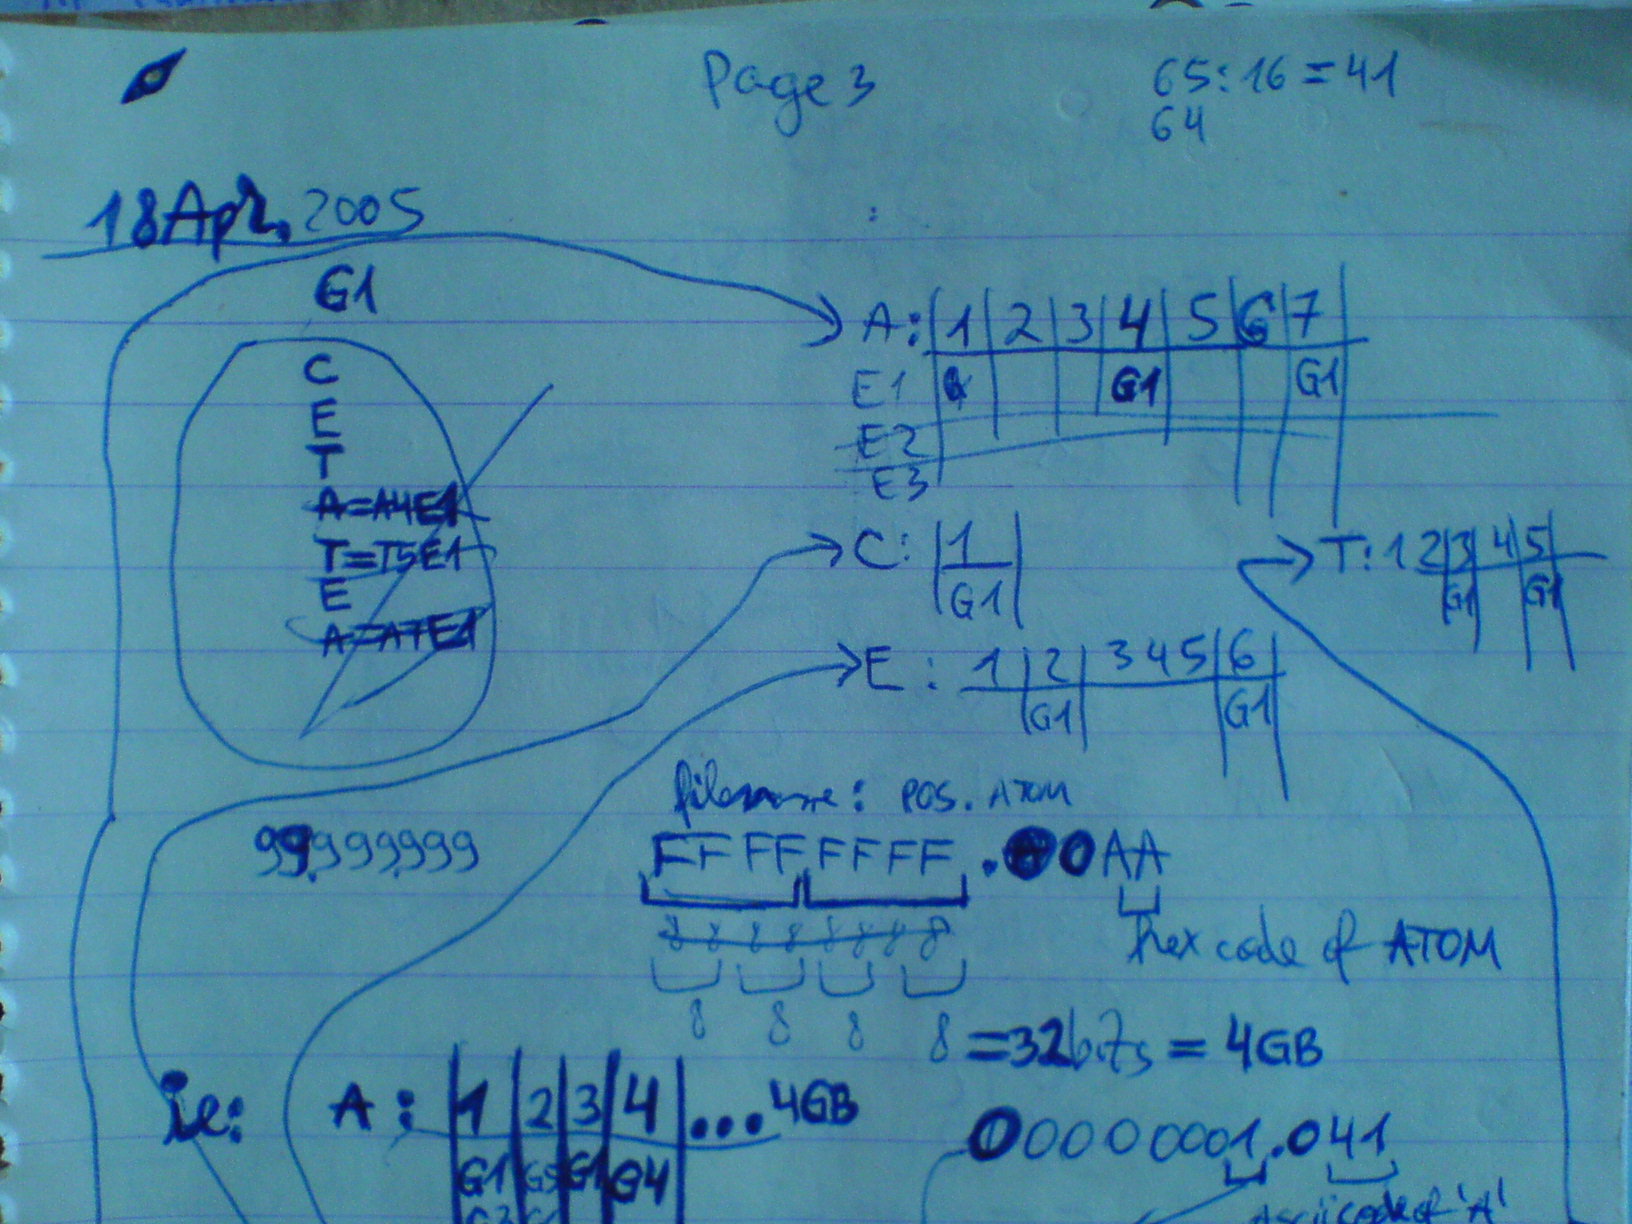 Page 3
65:16=41
64
18 Apr. 2005
G1
C
E
T
A=A4E1
T=T5E1
E
A=A7E1
A: 1 2 3 4 5 6 7
E1 G1 G1
E2
E3
C: 1
G1
T: 1 2 3 4 5
G1 G1
E: 1 2 3 4 5 6
G1 G1
filename: POS. ATOM
99,999,999
FFFF FFFF . 0AA
8 8 8 8 8 8 8 8
hex code of ATOM
8 8 8 8 =32bits = 4GB
ie: A: 1 2 3 4 ... 4GB
00000001.041
G1 G5 G1 G4
Ascii code of 'A'